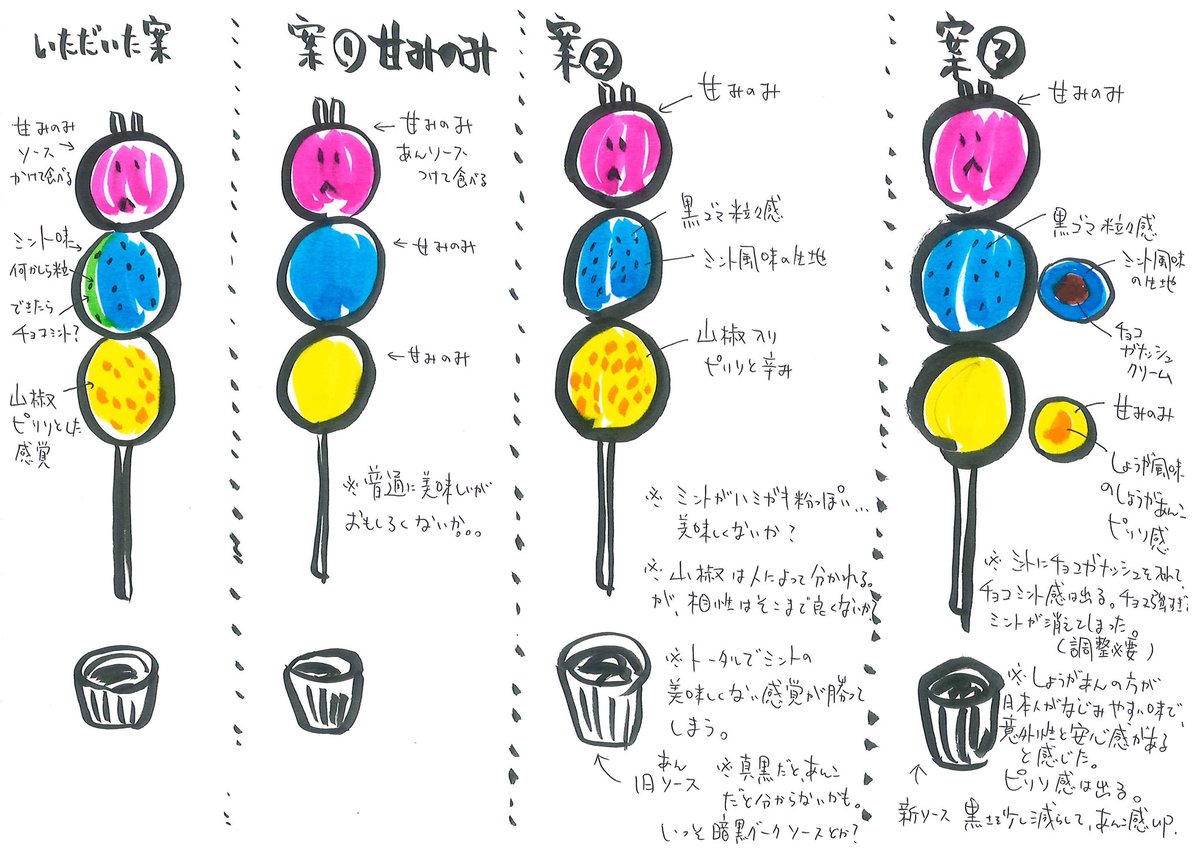 いただいた案
甘みのみ
ソース
かけて食べる
ミント味
何かしら粒
できたら
チョコミント?
山椒
ピリリとした
感覚
案① 甘みのみ
甘みのみ
あんソース
つけて食べる
甘みのみ
甘みのみ
※普通に美味しいが
おもしろくないか。。。
案②
甘みのみ
黒ゴマ粒々感
ミント風味の生地
山椒入り
ピリリと辛み
※ミントがハミガキ粉っぽい…
美味しくないか?
※山椒は人によって分かれる。
が、相性はそこまで良くないか?
※トータルでミントの
美味しくない感覚が勝って
しまう。
あん
旧ソース
※真黒だと、あんこ
だと分からないかも。
いっそ暗黒ダークソースとか?
案③
甘みのみ
黒ゴマ粒々感
ミント風味
の生地
チョコ
ガナッシュ
クリーム
甘みのみ
しょうが風味
のしょうがあんこ
ピリリ感
※ミントにチョコガナッシュを入れて、
チョコミント感は出る。チョコ強すぎて
ミントが消えてしまった。
(調整必要)
※しょうがあんの方が
日本人がなじみやすい味で、
意外性と安心感がある
と感じた。
ピリリ感は出る。
新ソース 黒さを少し減らして、あんこ感UP.